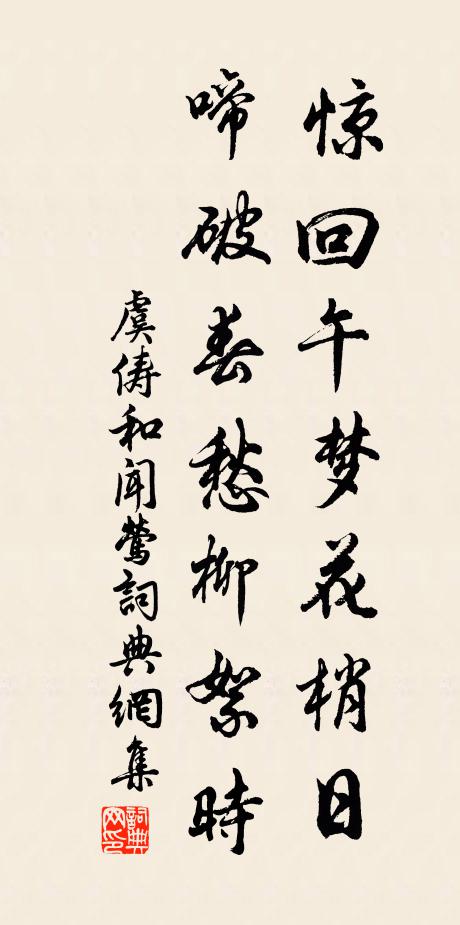 惊回午梦花梢日
啼破春愁柳絮時
虞俦和闻莺詞典網集
詞典网印